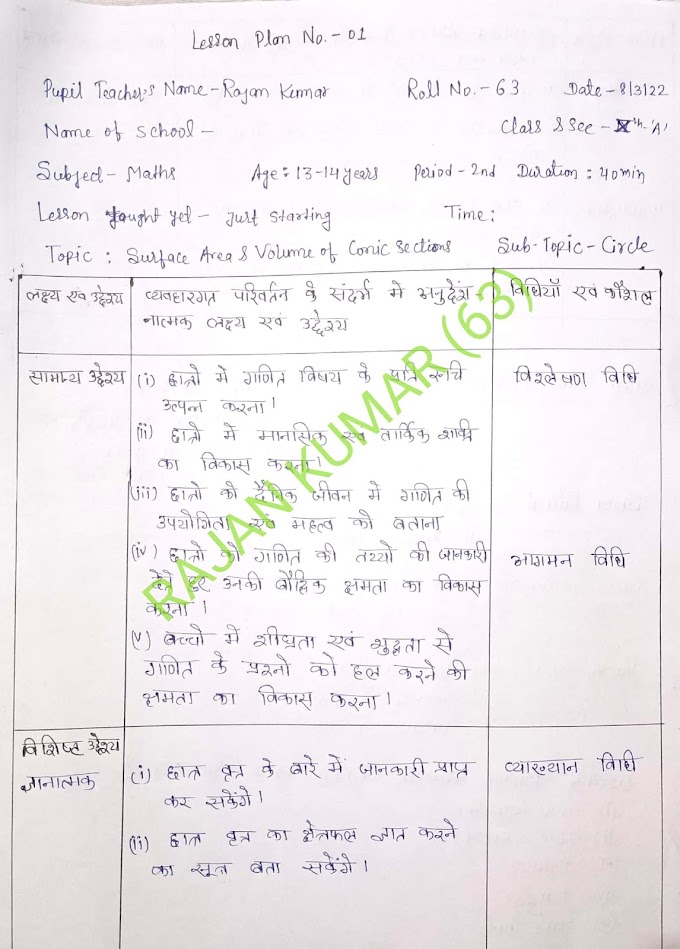 Lesson Plan No. - 01
Pupil Teacher's Name - Rajan Kumar Roll No. - 63 Date - 8/3/22
Name of School - Class & Sec - Xth 'A'
Subject - Maths Age : 13-14 years Period - 2nd Duration : 40 min
Lesson taught yet - Just starting Time :
Topic : Surface Area & Volume of Conic Sections Sub-Topic - Circle
लक्ष्य एवं उद्देश्य
व्यवहारगत परिवर्तन के संदर्भ में अनुदेश-
नात्मक लक्ष्य एवं उद्देश्य
विधियाँ एवं कौशल
सामान्य उद्देश्य
(i) छात्रो में गणित विषय के प्रति रूची
उत्पन्न करना।
(ii) छात्रो में मानसिक एवं तार्किक शक्ति
का विकास करना।
(iii) छात्रो को दैनिक जीवन में गणित की
उपयोगिता एवं महत्व को बताना
(iv) छात्रो को गणित की तथ्यो की जानकारी
देते हुए उनकी बौद्धिक क्षमता का विकास
करना।
(v) बच्चो में शीघ्रता एवं शुद्धता से
गणित के प्रश्नो को हल करने की
क्षमता का विकास करना।
विश्लेषण विधि
आगमन विधि
विशिष्ट उद्देश्य
ज्ञानात्मक
(i) छात्र वृत्र के बारे में जानकारी प्राप्त
कर सकेंगे।
(ii) छात्र वृत्र का क्षेत्रफल ज्ञात करने
का सूत्र बता सकेंगे।
व्याख्यान विधि
RAJAN KUMAR (63)